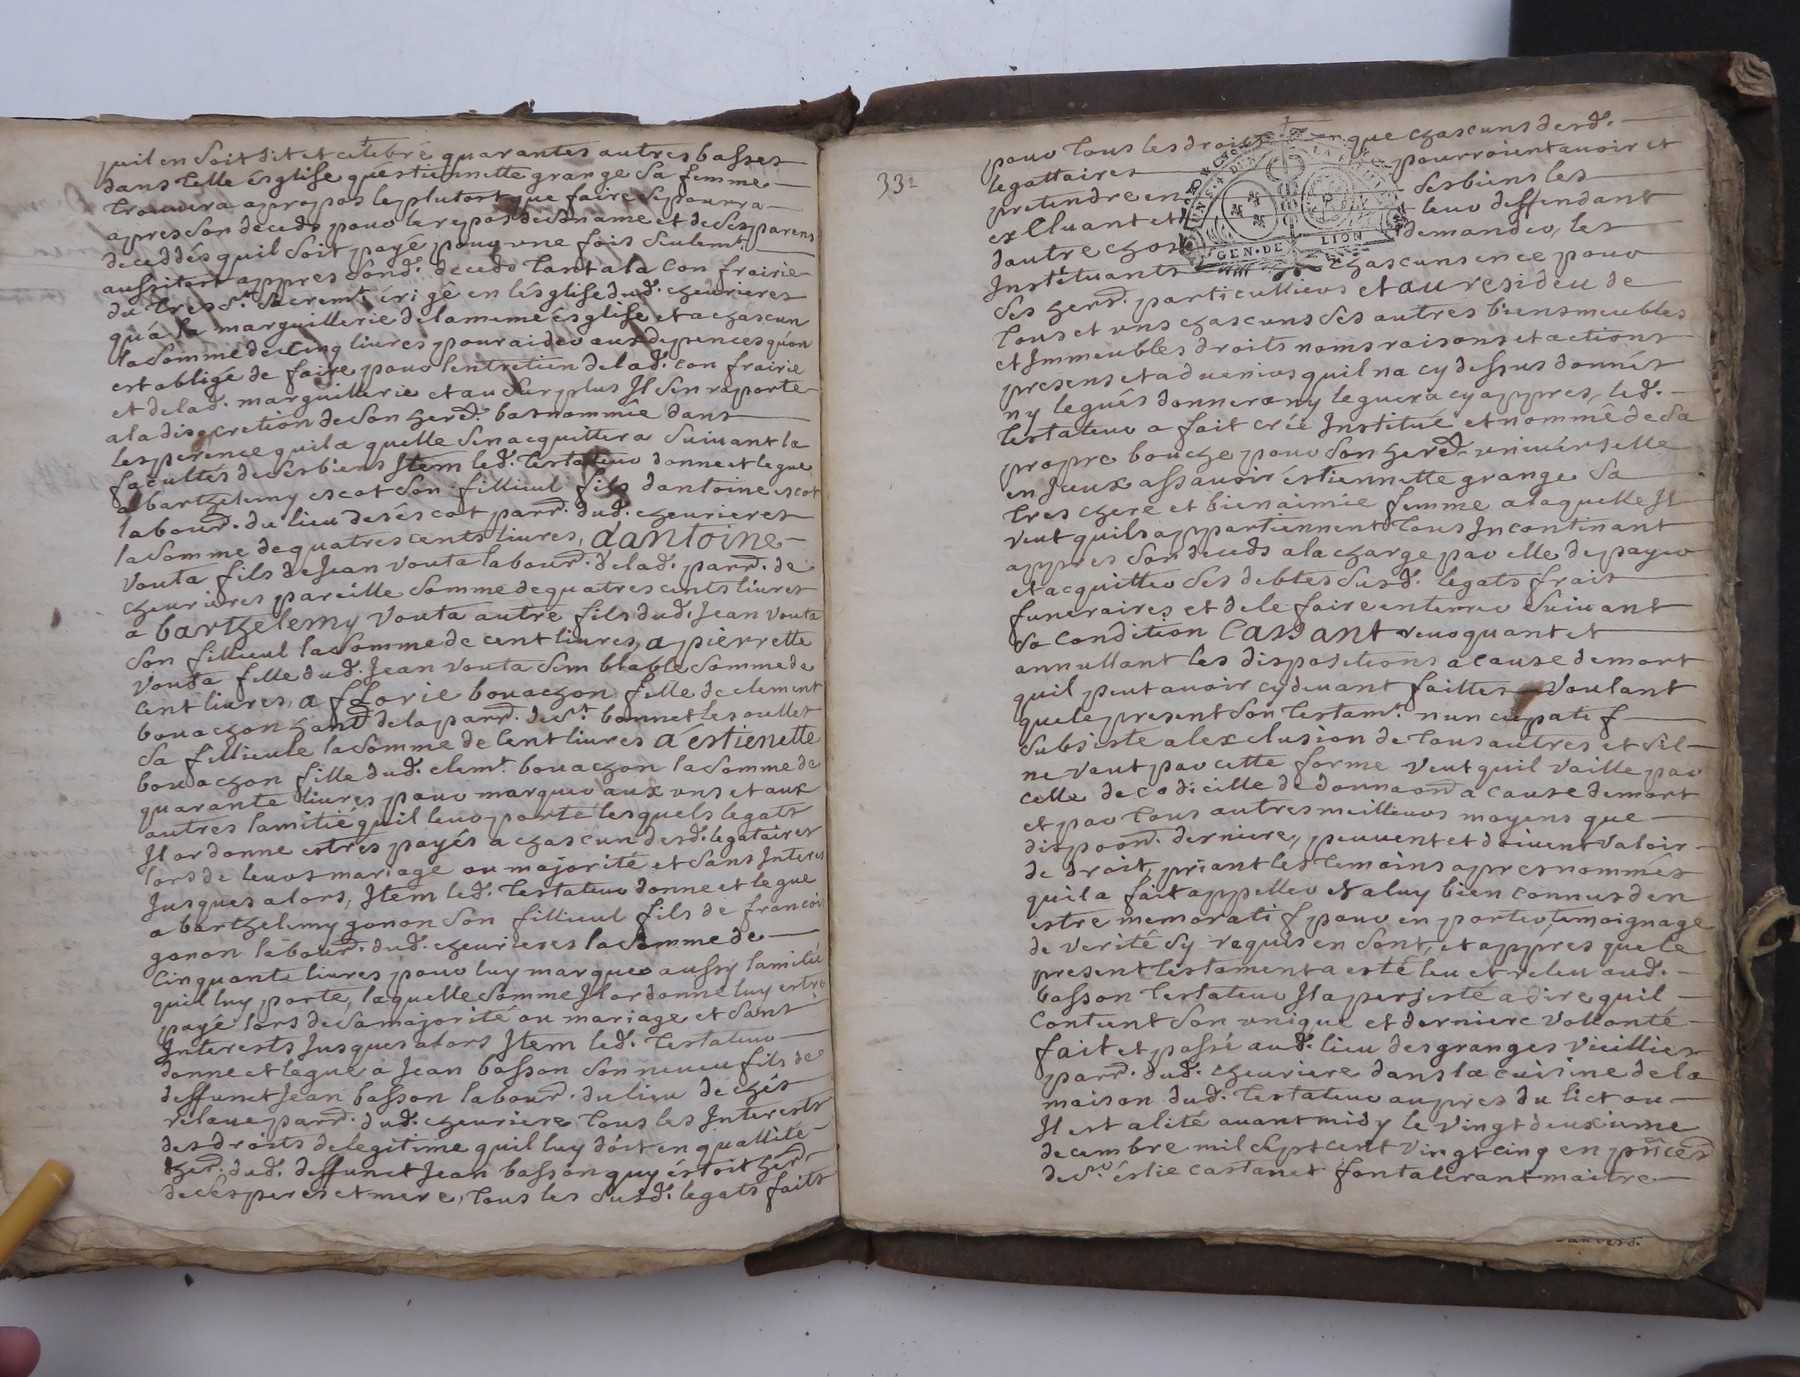 quil en soit dit et celebré quarantes autres basses
dans telle ésglise questiennette grange sa femme
trouvera apropos le plutost que faire se pourra
apres son deceds pour le repos de son ame et de ses parens
deceddés quil soit payé pour une fois seulemt.
aussitost appres sond. deceds tant a la con frairie
du tres st. sacremt. érigé en lésglise dud. cheurieres
qu'a la marguillerie de la meme ésglise et a chascun
la somme de cinq livres pour aider aux depences quon
est obligé de faire pour lentretien de lad. con frairie
et de lad. marguillerie et au surplus Il sen raporte
a la discretion de son herd. bas nommée dans
lesperence quil a quelle sen acquittera suivant la
facultés de ses biens Item led. testateur donne et legue
a barthelemy escot son fillieul fils dantoine escot
labourd. du lieu desescot parrd. dud. cheurieres
la somme de quatres cents livres, a antoine
vouta fils de Jean vouta labourd. de lad. parrd. de
cheurieres pareille somme de quatres cents livres
a barthelemy vouta autre fils dud. Jean vouta
son fillieul la somme de cent livres, a pierrette
vouta fille dud. Jean vouta semblable somme de
cent livres, a florie bouachon fille de clement
bouachon de la parrd. de st. bonnet les oulles
sa fillieule la somme de cent livres a estienette
bouachon fille dud. clemt. bouachon la somme de
quarante livres pour marquer aux uns et aux
autres lamitié quil leur porté lesquels legats
Il ordonne estres payés a chascun desd. legataires
lors de leurs mariage ou majorité et sans Interes
Jusques alors, Item led. testateur donne et legue
a barthelemy gonon son fillieul fils de francois
gonon labourd. dud. cheurieres la somme de
cinquante livres pour luy marquer aussy lamitié
quil luy porte, laquelle somme Il ordonne luy estre
payé lors de sa majorité ou mariage et sans
Interests Jusques alors Item led. testateur
donne et legue a Jean basson son neveu fils de
deffunct Jean basson labourd. du lieu de chés
relaue parrd. dud. cheuriere tous les Interests
des droits de legitime quil luy doit en quallité
herd. dud. deffunct Jean basson quy éstoit herd.
de ses peres et mere, tous les susd. legats faits
33
pour tous les droits que chascuns desd.
legattaires pourroient avoir et
pretendre en ses biens les
exlluant et leur deffendant
dautre chose demander, les
Instituants chascuns en ce pour
ses herd. particulliers et au residu de
tous et uns chascuns ses autres biens meubles
et Immeubles droits noms raisons et actions
presens et advenirs quil na cy dessus donnés
ny legués donnera ny leguera cy appres, led.
testateur a fait créé Institué et nommé de sa
propre bouche pour son herd. universelle
en Iceux assavoir éstiennette grange sa
tres chere et bien aimée femme a laquelle Il
veut quils appartiennent tous Incontinant
appres son deceds a la charge par elle de payer
et acquitter ses debtes susd. legats frais
funeraires et de le faire enterrer suivant
sa condition Cassant revoquant et
annullant les dispositions a cause de mort
quil peut avoir cy devant faittes voulant
que le present son testamt. nuncupatif
subsiste a lexclusion de tous autres et sil
ne vaut par cette forme veut quil vaille par
celle de codicille de donnaon a cause de mort
et par tous autres meilleurs moyens que
dispoon. derniere, peuvent et doivent valoir
de droit, priant les temoins apres nommés
quil a fait appeller et a luy bien connus den
estre memoratif pour en porter temoignage
de verité sy requis en sont, et appres que le
present testament a esté leu et releu aud.
basson testateur Il a persisté a dire quil
contient son unique et derniere vollonté
fait et passé aud. lieu des granges vieillies
parrd. dud. cheuriere dans la cuisine de la
maison dud. testateur aupres du lict ou
Il est alité avant midy le vingt deuxieme
decembre mil sept cent vingt cinq en pñces
de sr. éslie castanet fontalirant maitre
GEN. DE LION